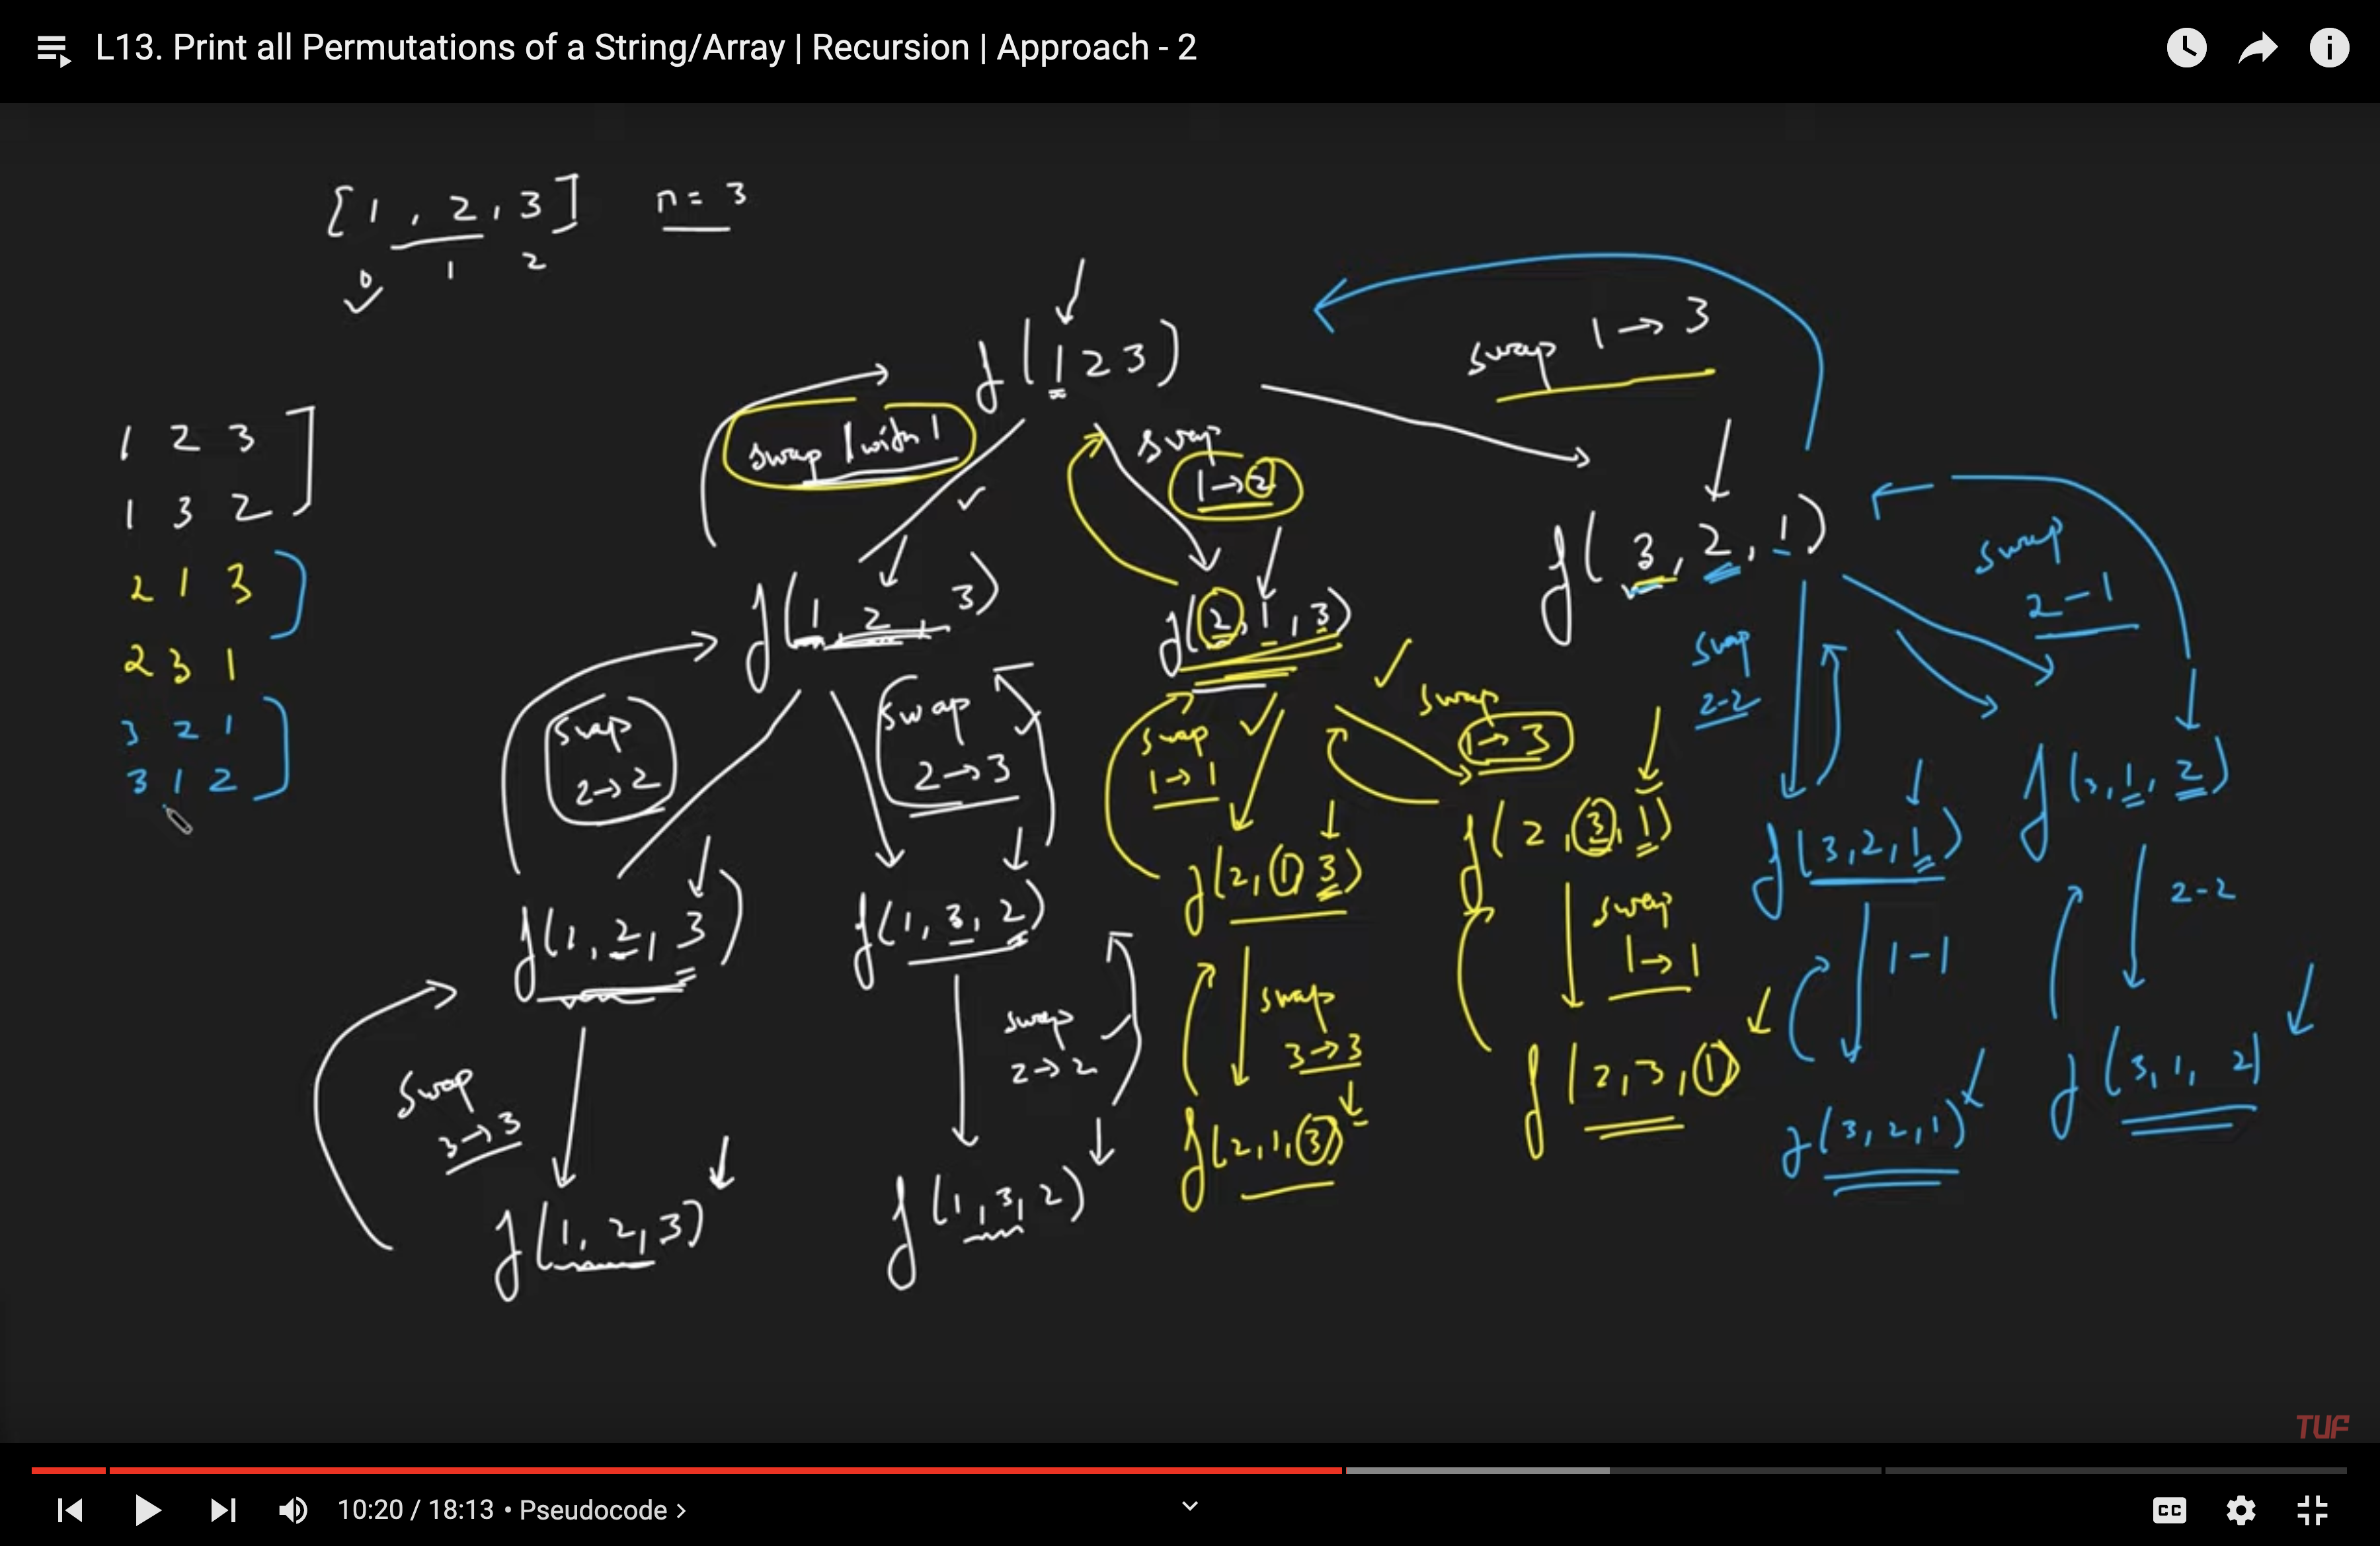 L13. Print all Permutations of a String/Array | Recursion | Approach - 2
[1, 2, 3] n = 3
0 1 2
f(1 2 3)
swap 1 → 3
swap 1 with 1
swap
1 → 2
1 2 3
1 3 2
2 1 3
2 3 1
3 2 1
3 1 2
f(1, 2, 3)
f(2, 1, 3)
f(3, 2, 1)
swap
2 → 2
swap
2 → 3
swap
1 → 1
swap
1 → 3
swap
2-2
swap
2-1
f(1, 2, 3)
f(1, 3, 2)
f(2, 1 3)
f(2, 3, 1)
f(3, 2, 1)
f(3, 1, 2)
swap
3 → 3
swap
2 → 2
swap
3 → 3
swap
1 → 1
1-1
2-2
f(1, 2, 3)
f(1, 3, 2)
f(2, 1, 3)
f(2, 3, 1)
f(3, 2, 1)
f(3, 1, 2)
TUF
10:20 / 18:13 • Pseudocode >
CC